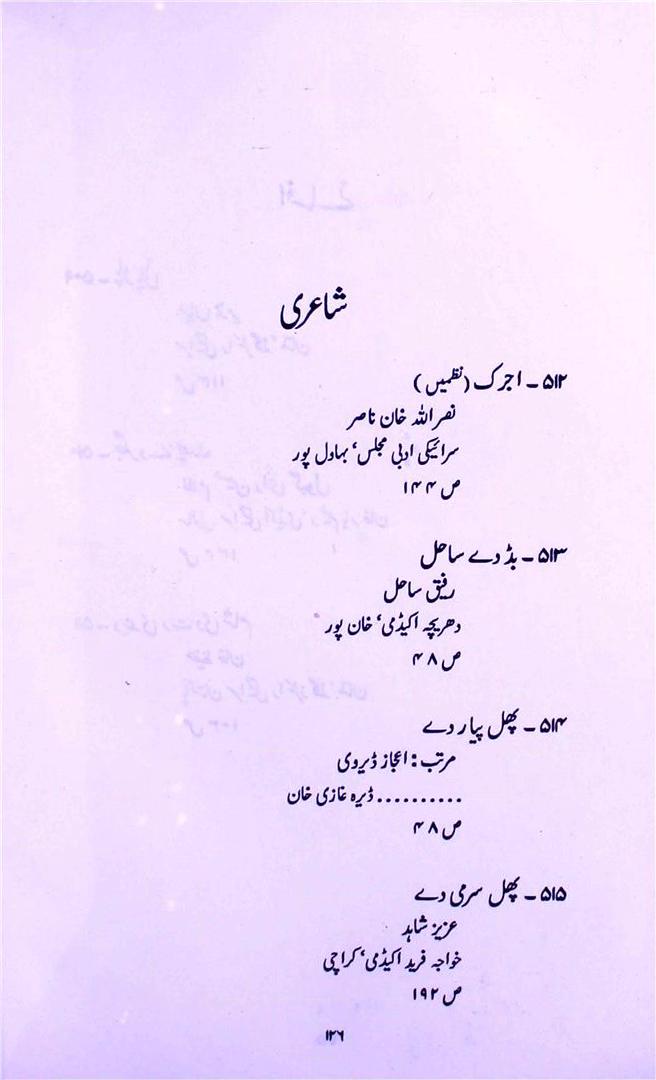 شاعری
۵۱۲ ۔ اجرک (نظمیں)
نصر اللہ خان ناصر
سرائیکی ادبی مجلس، بہاول پور
ص ۱۴۴
۵۱۳ ۔ بڈ دے ساحل
رفیق ساحل
دھریجہ اکیڈمی، خان پور
ص ۴۸
۵۱۴ ۔ پھل پیار دے
مرتب : اعجاز ڈیروی
.......... ڈیرہ غازی خان
ص ۴۸
۵۱۵ ۔ پھل سرمی دے
عزیز شاہد
خواجہ فرید اکیڈمی، کراچی
ص ۱۹۲
۱۲۶